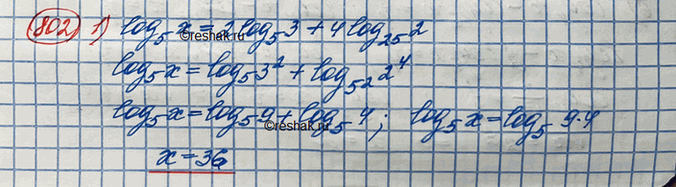 802 1) log₅ x = 2 log₅ 3 + 4 log₂₅ 2
©reshak.ru
log₅ x = log₅ 3² + log₅² 2⁴
log₅ x = log₅ 9 + log₅ 4 ; log₅ x = log₅ 9·4
©reshak.ru
x = 36